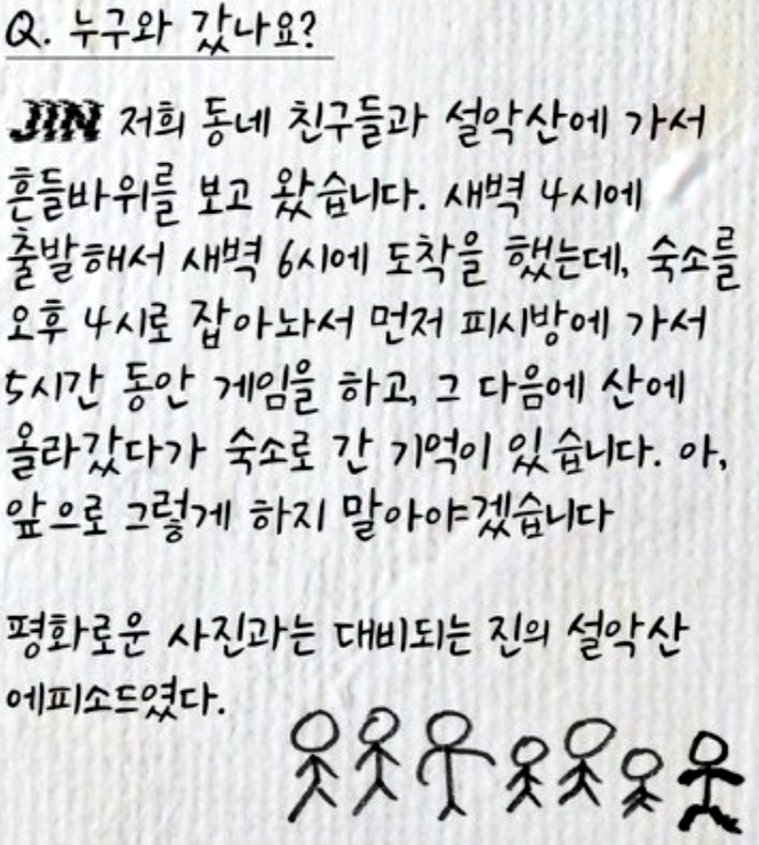 Q. 누구와 갔나요?
JIN 저희 동네 친구들과 설악산에 가서
흔들바위를 보고 왔습니다. 새벽 4시에
출발해서 새벽 6시에 도착을 했는데, 숙소를
오후 4시로 잡아놔서 먼저 피시방에 가서
5시간 동안 게임을 하고, 그 다음에 산에
올라갔다가 숙소로 간 기억이 있습니다. 아,
앞으로 그렇게 하지 말아야겠습니다
평화로운 사진과는 대비되는 진의 설악산
에피소드였다.